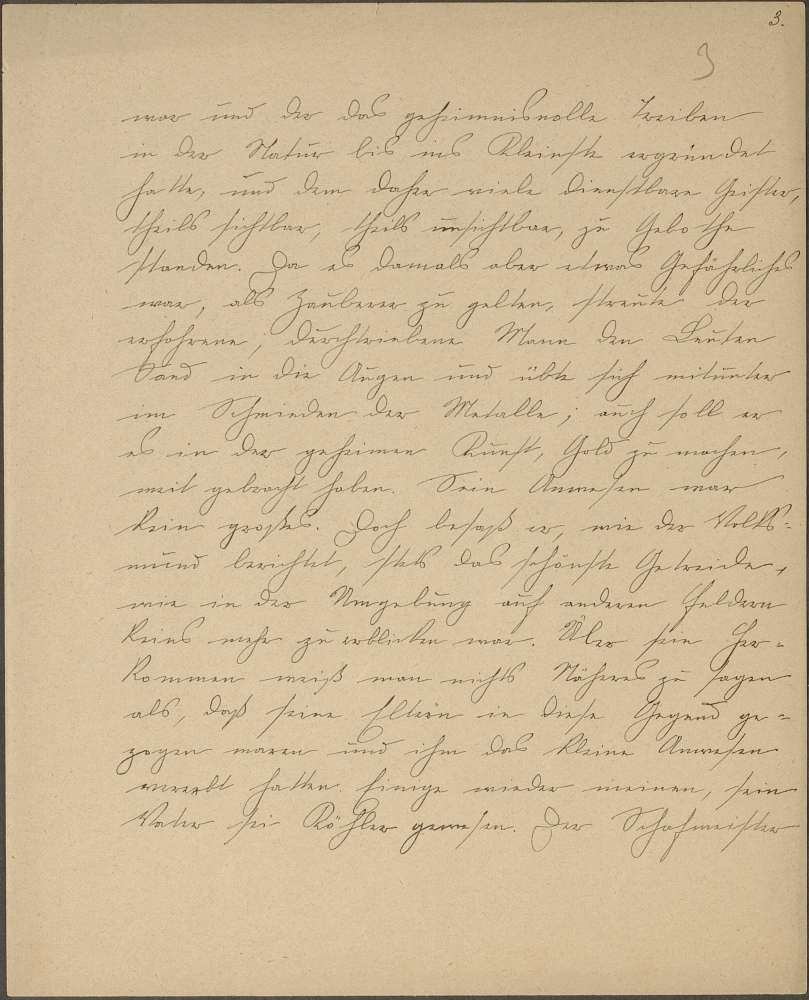 3.
3
war und der das geheimnisvolle Treiben
in der Natur bis ins Kleinste ergründet
hatte, und dem daher viele dienstbare Geister,
theils sichtbar, theils unsichtbar, zu Gebothe
standen. Da es damals aber etwas Gefährliches
war, als Zauberer zu gelten, streute der
erfahrene, durchtriebene Mann den Leuten
Sand in die Augen und übte sich mitunter
im Schmieden der Metalle; auch soll er
es in der geheimen Kunst, Gold zu machen,
weit gebracht haben. Sein Anwesen war
kein großes. Doch besaß er, wie der Volks-
mund berichtet, stets das schönste Getreide,
wie in der Umgebung auf anderen Feldern
keins mehr zu erblicken war. Über sein Her-
kommen weiß man nichts Näheres zu sagen
als, daß seine Eltern in diese Gegend ge-
zogen waren und ihm das kleine Anwesen
vererbt hatten. Einige wieder meinen, sein
Vater sei Köhler gewesen. Der Schafmeister